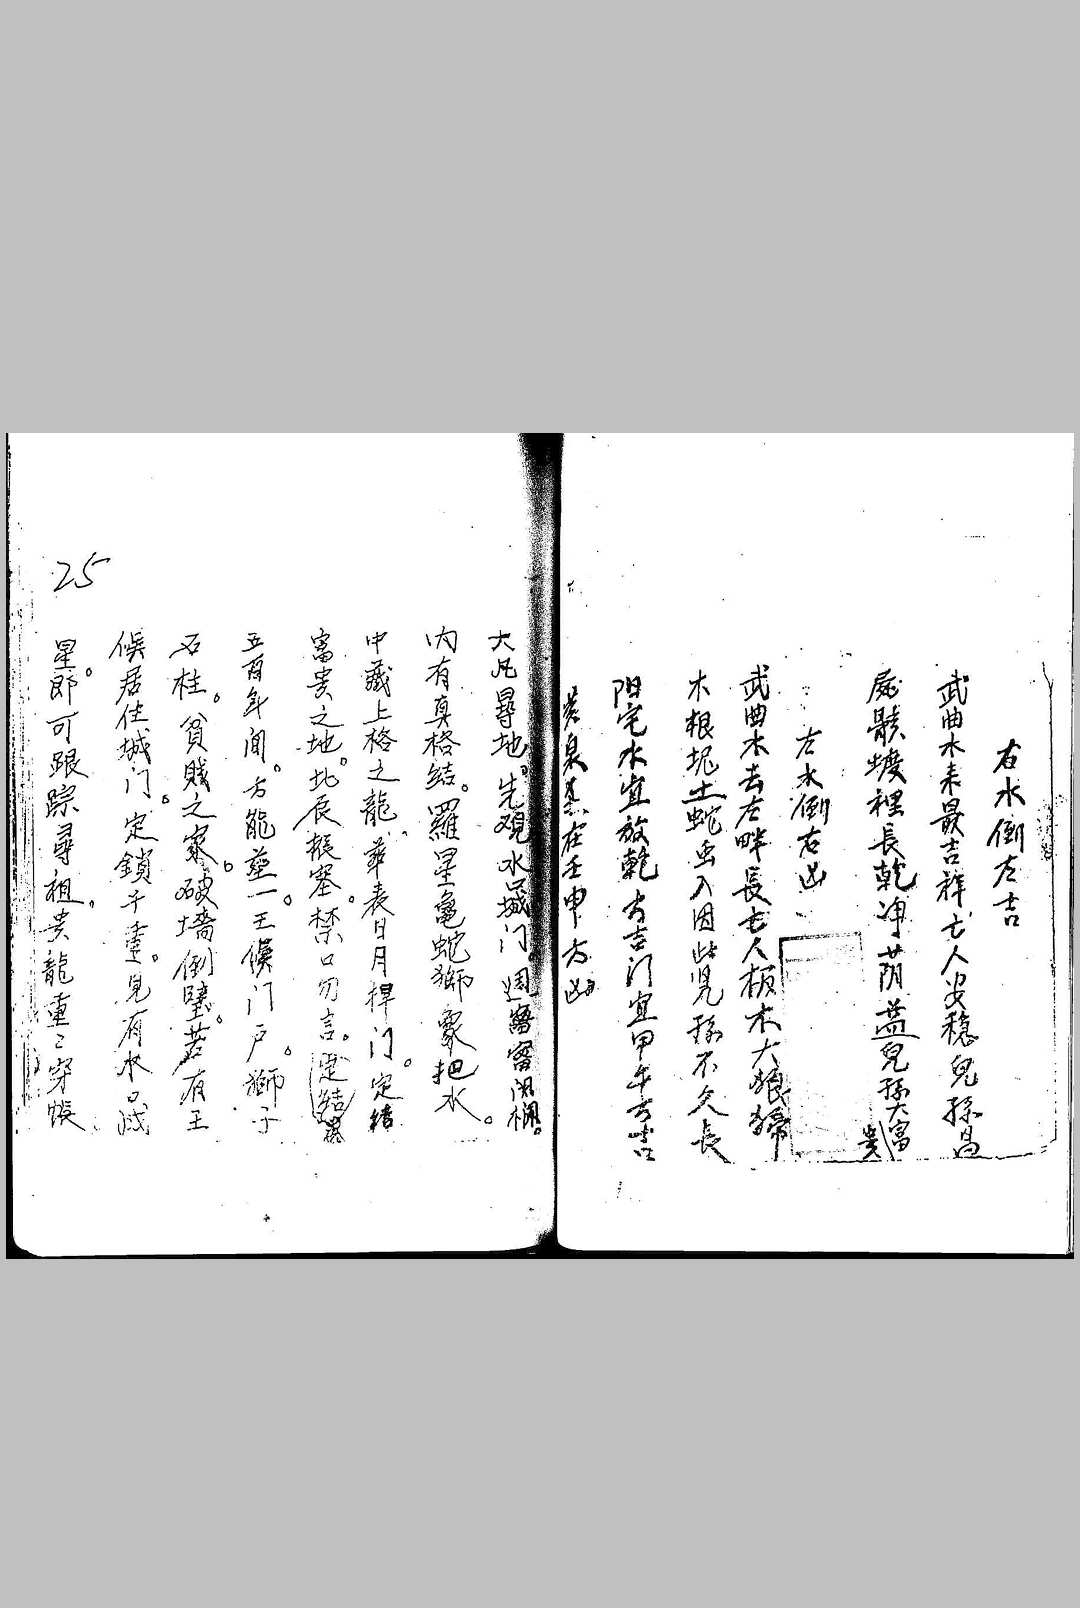 右水倒左吉
武曲水来最吉祥亡人安穏兒孫昌
屍骸壙裡長乾净荫益兒孫大富貴
左水倒右凶
武曲水去左畔長亡人板木大狼狽
木根坭土蛇虫入因此兒孫不久長
阳宅水宜放乾方吉门宜甲午方吉
黄泉忌在壬申方凶
大凡尋地。先观水城门。週密関欄。
内有真格结。羅星龜蛇獅象把水。
中藏上格之龍。華表日月捍门。定结
富贵之地。北辰搬塞。禁口勿言。
五百年间。方能葬一。王候门户。獅子
石柱。貧賤之家。破墻倒壁。若有王
候居住城门。定鎖千重。見有水口
星郎可跟踪尋祖。贵龍重〻穿帳
25